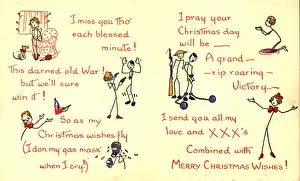 I miss you Tho'
each blessed
minute!
This darned old War!
but we'll sure
win it!
So as my
Christmas wishes fly
(I don my gas mask
when I cry!)
I pray your
Christmas day
will be —
A grand —
-rip roaring —
Victory —
I send you all my
love and XXX's
Combined with
MERRY CHRISTMAS WISHES!